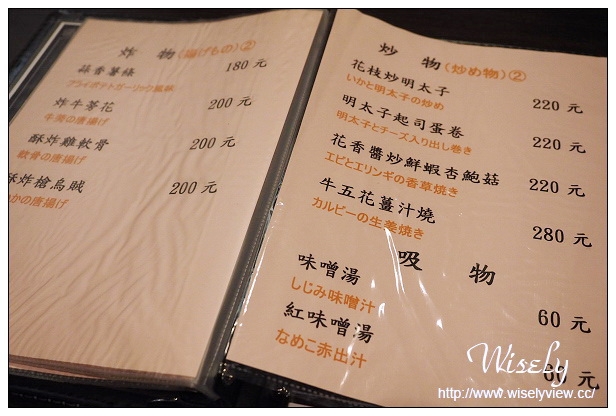 炸 物（揚げもの）②
蒜香薯條 180 元
フライポットガーリック風味
炸牛蒡花 200 元
牛蒡の唐揚げ
酥炸雞軟骨 200 元
軟骨の唐揚げ
酥炸槍烏賊 200 元
かの唐揚げ
炒 物（炒め物）②
花枝炒明太子 220 元
いかと明太子の炒め
明太子起司蛋卷 220 元
明太子とチーズ入り出し巻き
花香醬炒鮮蝦杏鮑菇 220 元
エビとエリンギの香草焼き
牛五花薑汁燒 280 元
カルビーの生姜焼き
吸 物
味噌湯 60 元
しじみ味噌汁
紅味噌湯 60 元
なめこ赤出汁
Wisely
http://www.wiselyview.cc/